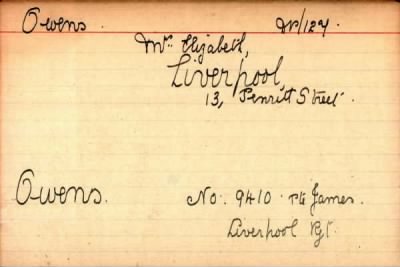 Owens. W/127.
Mrs. Elizabeth,
Liverpool,
13, Penritt Street.
Owens. No. 9410. Pte James.
Liverpool Rgt.